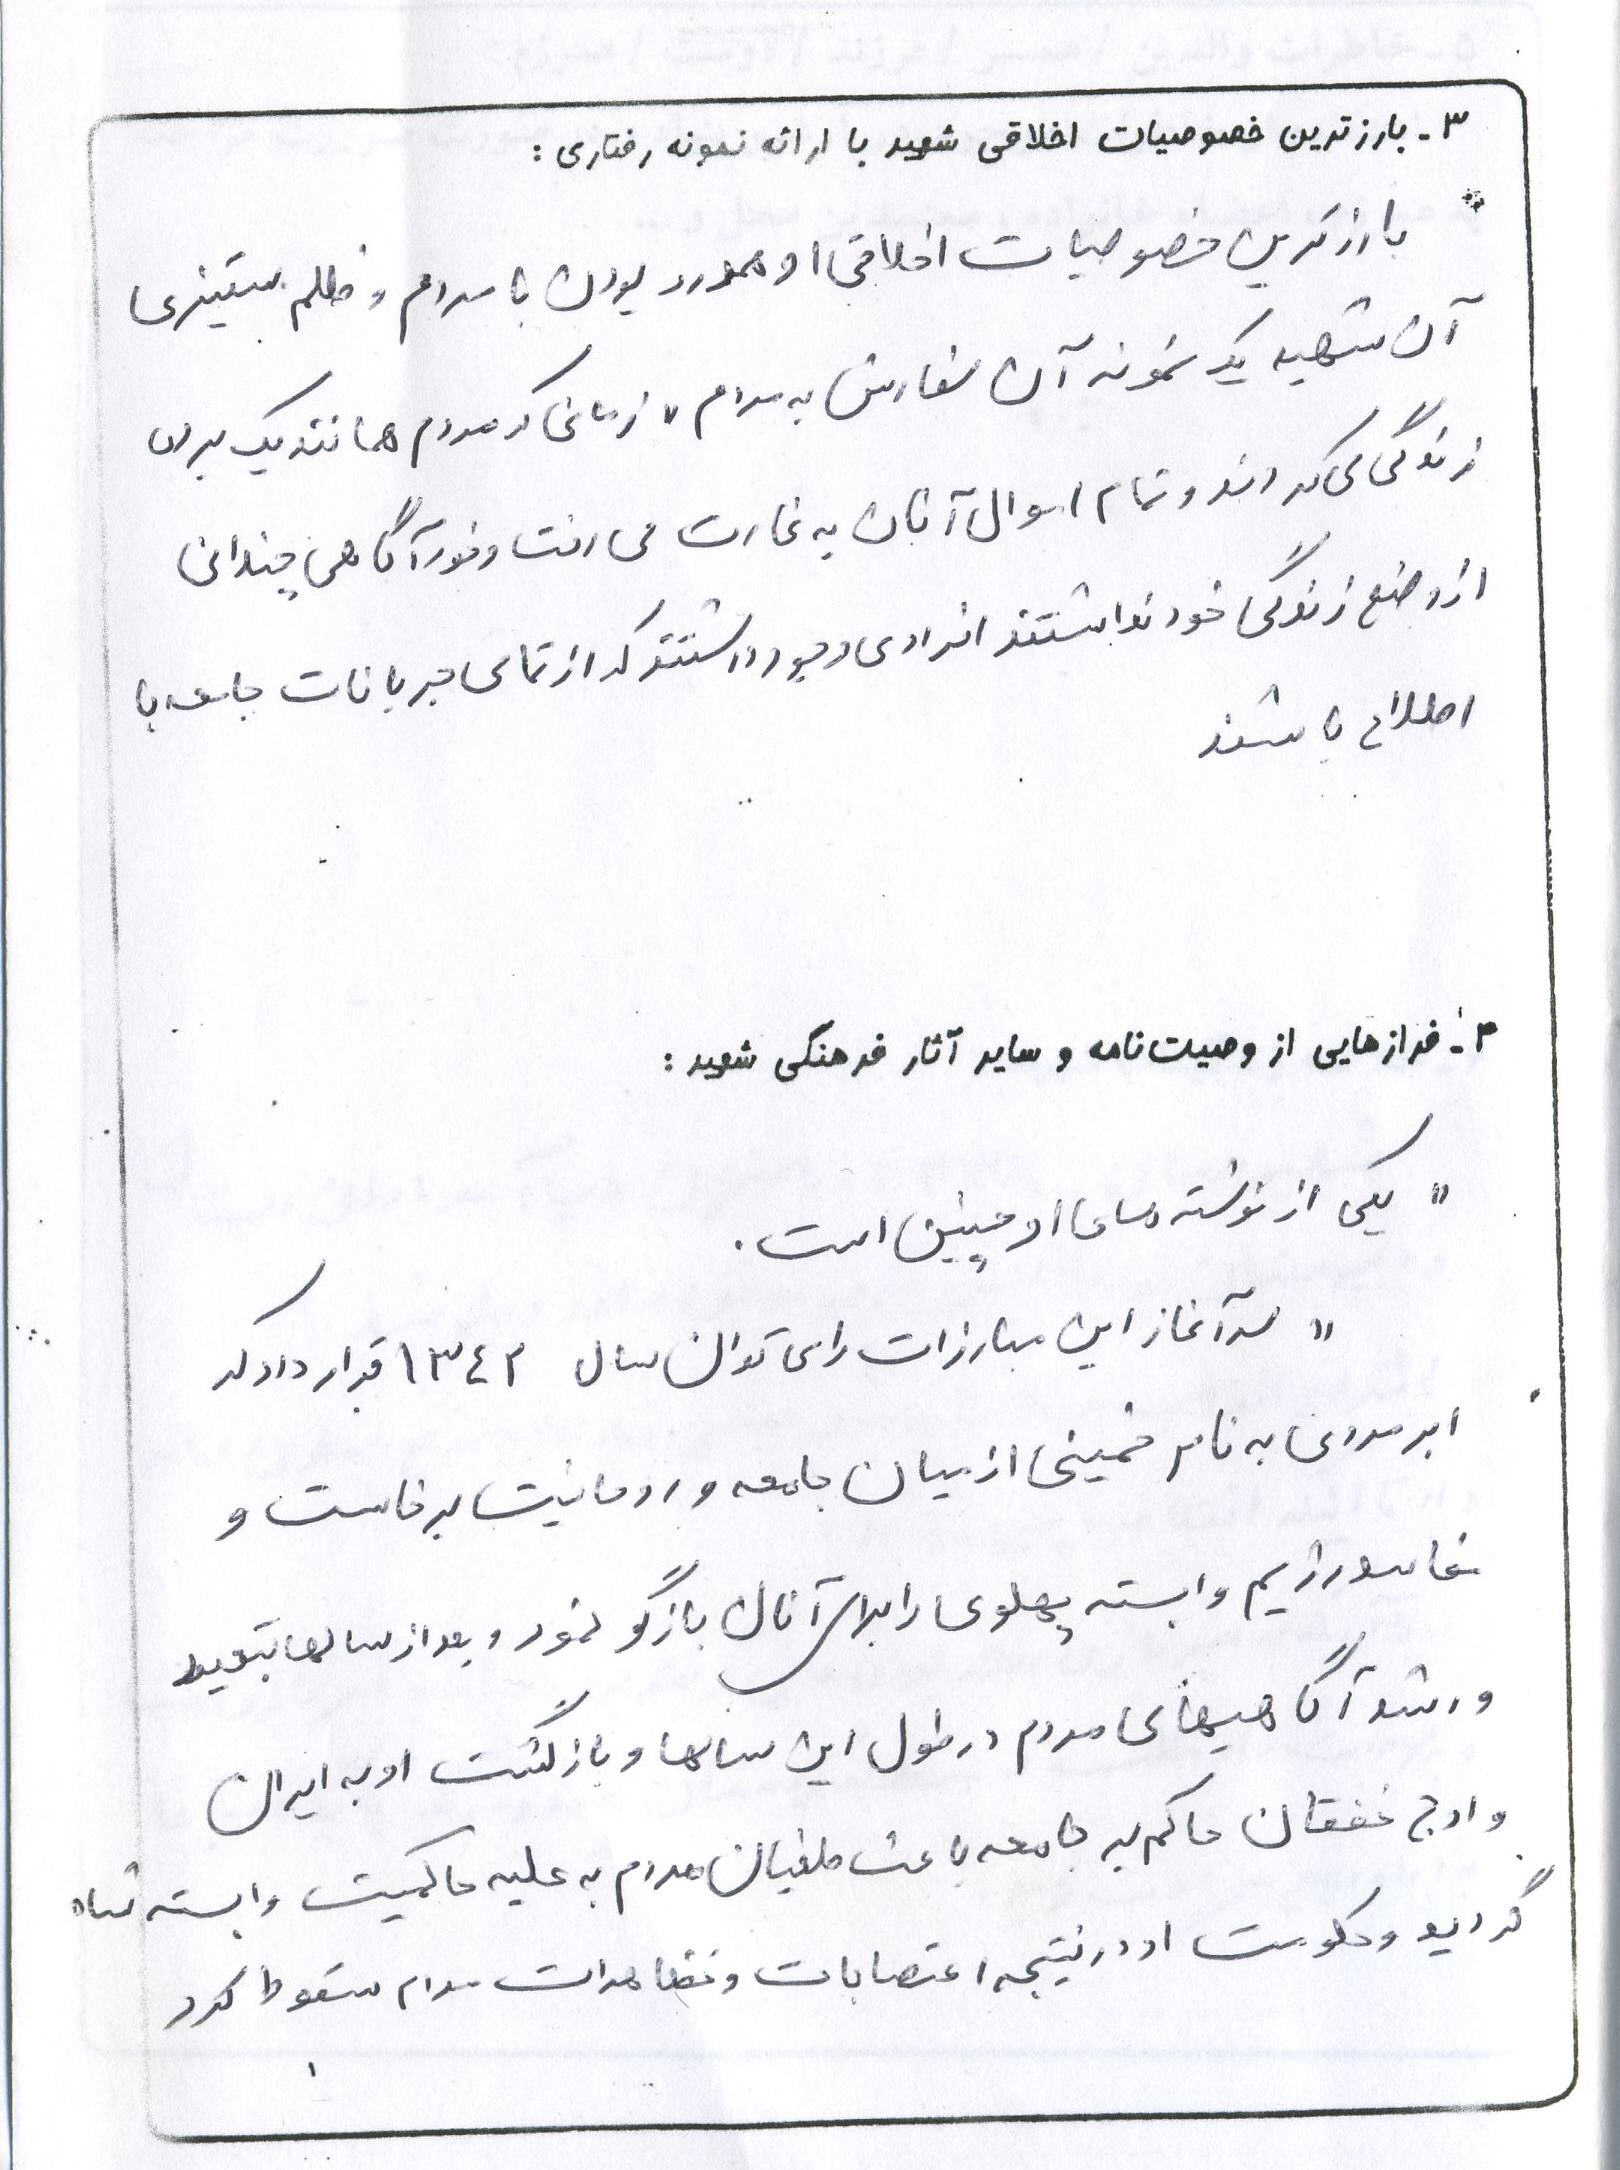 ۳ـ بارزترین خصوصیات اخلاقی شهید با ارائه نمونه رفتاری :
" بارزترین خصوصیات اخلاقی او همدرد بودن با مردم و ظلم ستیزی
آن شهید یک نمونه آن سفارش به مردم " زمانی که مردم همانند یک برده
زندگی می کردند و تمام اموال آنان به غارت می رفت و خود آگاهی چندانی
از وضع زندگی خود نداشتند افرادی وجود داشتند که از تمامی جریانات جامعه با
اطلاع باشند
۴ـ فرازهایی از وصیت‌نامه و سایر آثار فرهنگی شهید :
" یکی از نوشته های او چنین است .
" سرآغاز این مبارزات را می توان سال ۱۳٤۲ قرار داد که
ابر مردی به نام خمینی از میان جامعه و روحانیت برخاست و
مفاسد رژیم وابسته پهلوی را برای آنان بازگو نمود و بعد از سالها تبعید
و رشد آگاهیهای مردم در طول این سالها و بازگشت او به ایران
و اوج خفقان حاکم بر جامعه باعث طغیان مردم به علیه حاکمیت وابسته شاه
گردید و حکومت او در نتیجه اعتصابات و تظاهرات مردم سقوط کرد